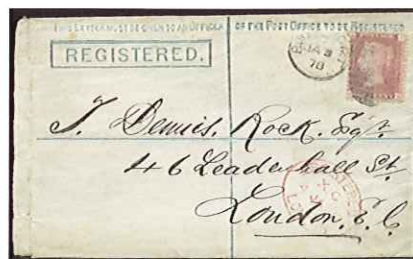 THIS LETTER MUST BE GIVEN TO AN OFFICER OF THE POST OFFICE TO BE REGISTERED
REGISTERED.
JA 3
78
T. Dennis. Rock. Esqr.
46 Leadenhall St.
London. E.C.